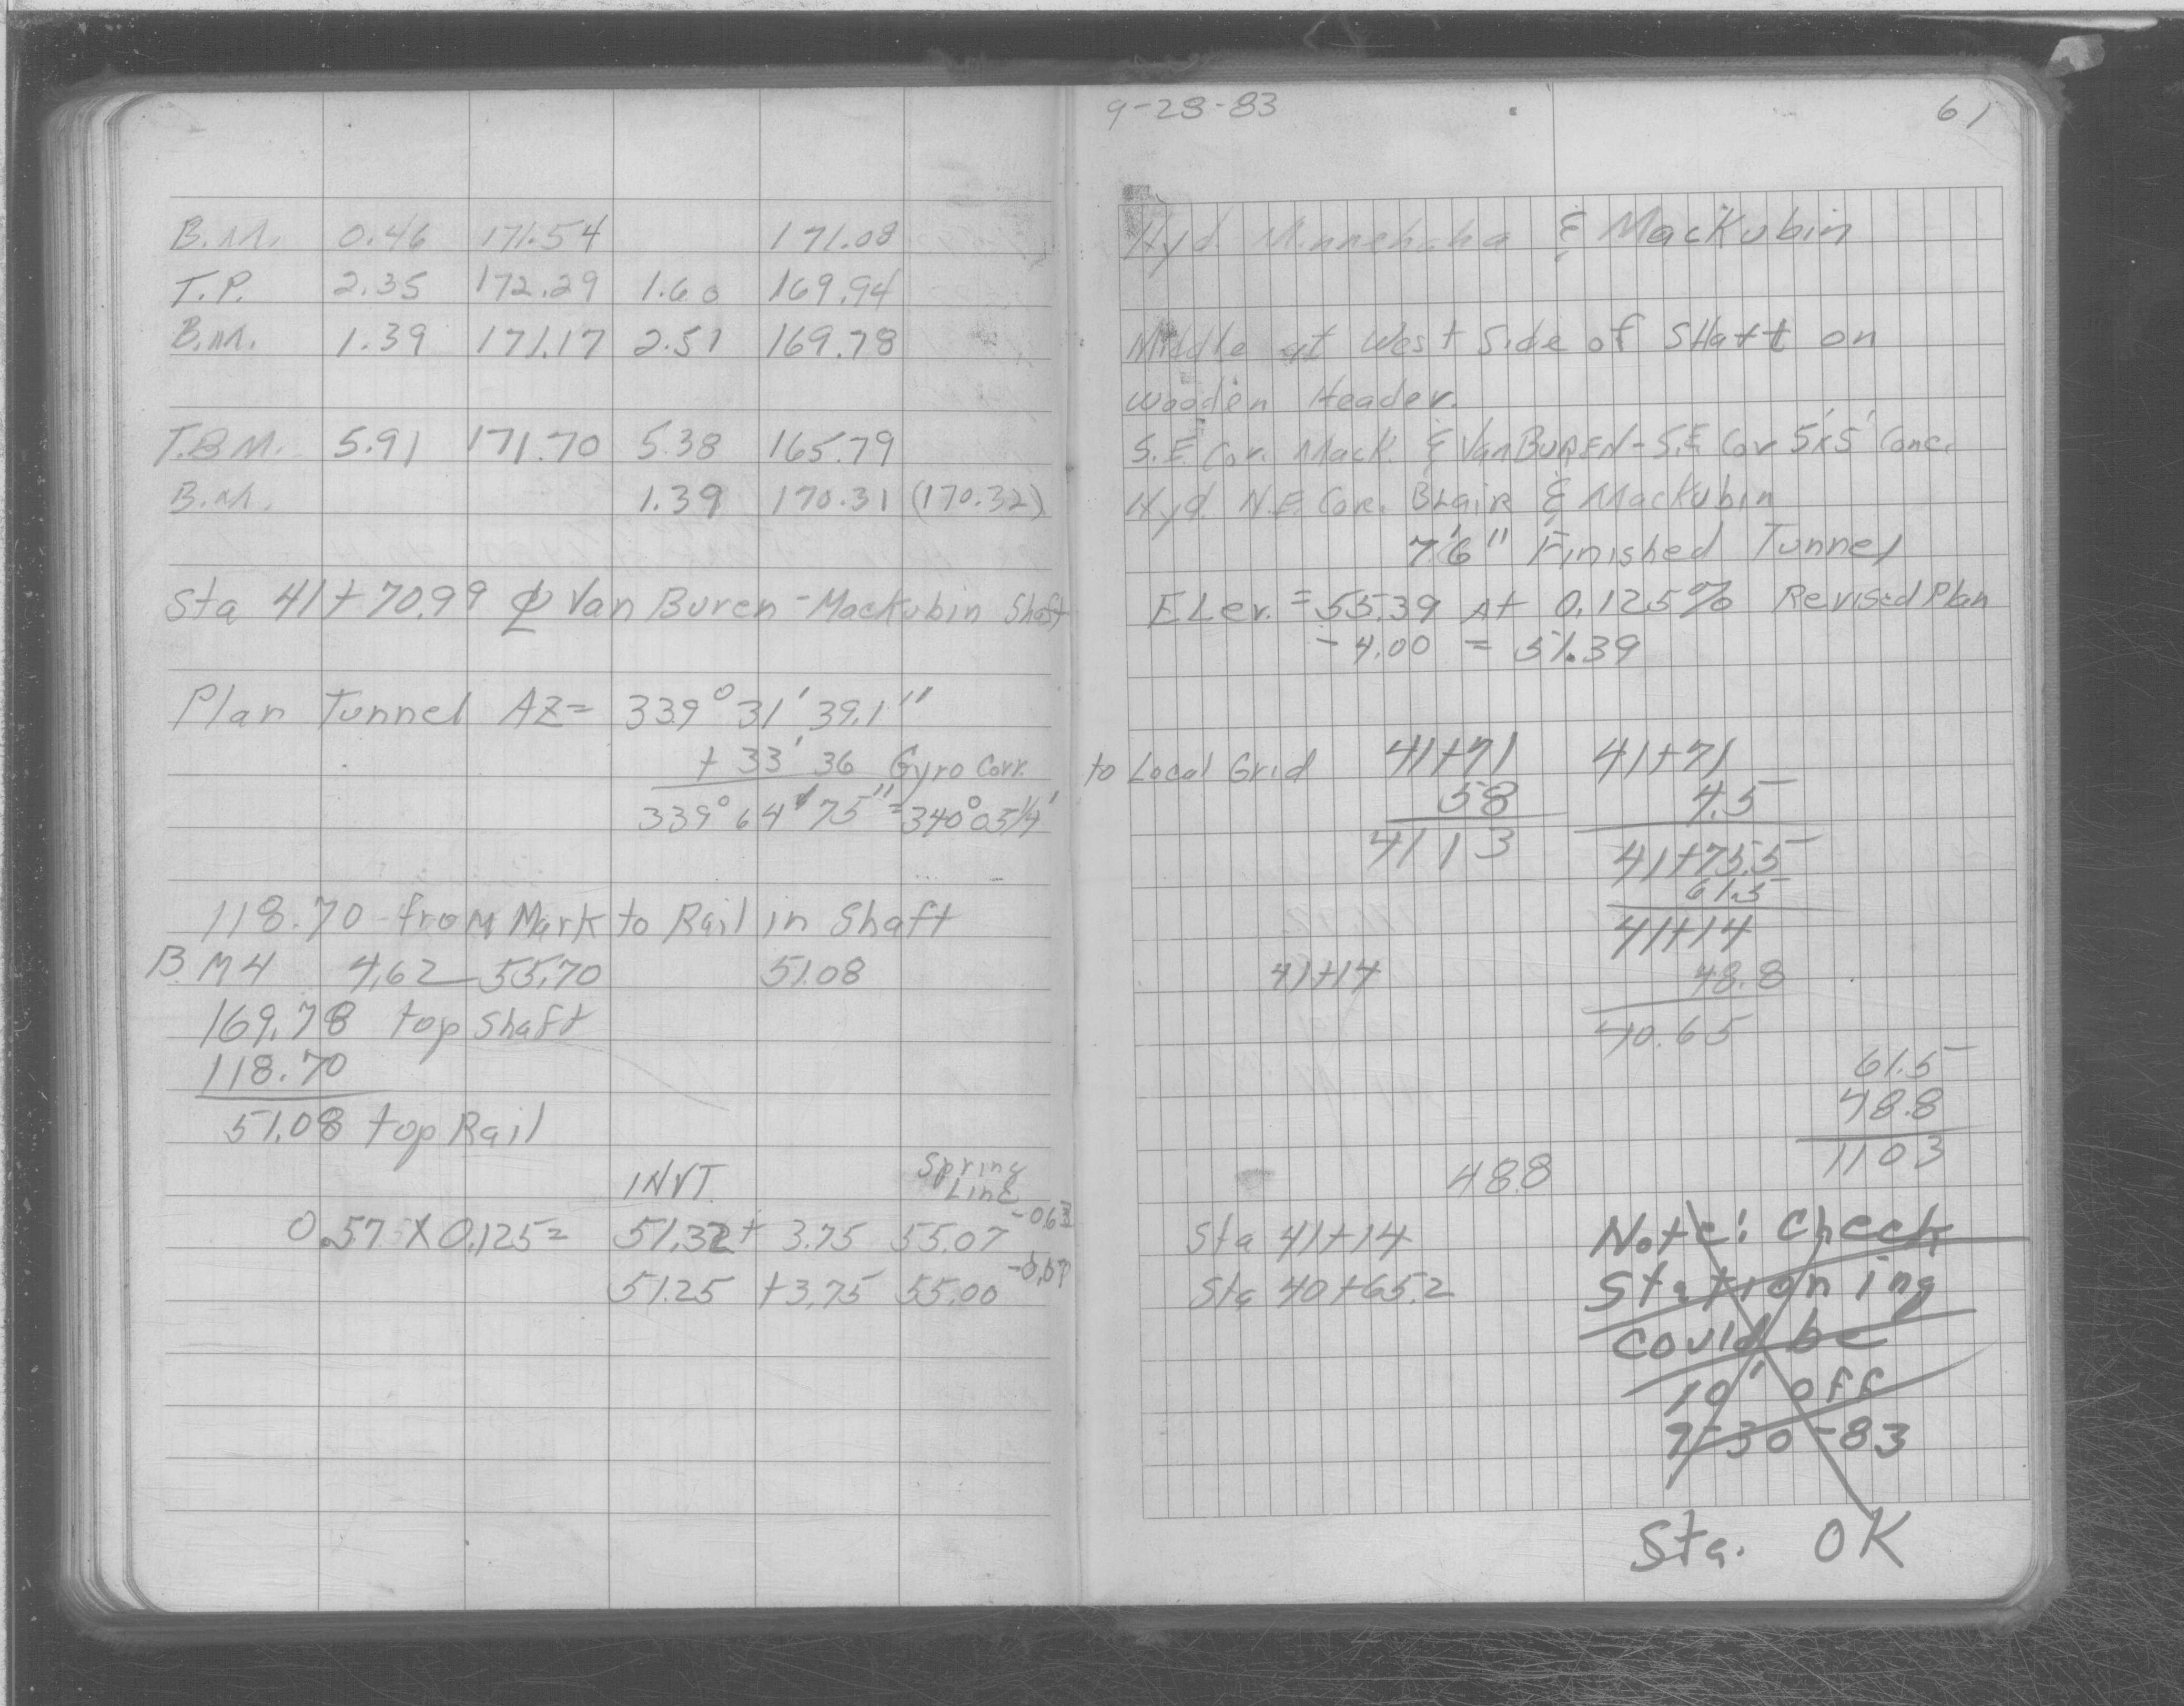 B.M. 0.46 171.54 171.08
T.P. 2.35 172.29 1.60 169.94
B.M. 1.39 171.17 2.51 169.78
T.B.M. 5.91 171.70 5.38 165.79
B.M. 1.39 170.31 (170.32)
Sta 41+70.99 ℄ Van Buren - Mackubin Shaft
Plan Tunnel AZ= 339° 31' 39.1"
+ 33' 36 Gyro Corr.
339° 64' 75" = 340° 05 1/4'
118.70 - from Mark to Rail in Shaft
B.M 4 4.62 55.70 51.08
169.78 top shaft
118.70
51.08 top Rail
INVT. Spring
Line
0.57 X 0.125= 51.32 + 3.75 55.07 -0.63
51.25 + 3.75 55.00
9-28-83 61
Hyd. Minnehaha & Mackubin
Middle at West Side of SHaft on
Wooden Header.
S.E. Cor. Mack. & VanBUREN - S.E Cor 5'x5' Conc.
Hyd. N.E. Cor. BLair & Mackubin
7'6" Finished Tunnel
ELev. = 55.39 At 0.125% Revised Plan
- 4.00 = 51.39
to Local Grid 41+71 41+71
58 4.5
4113 41+75.5
61.5
41+14
41+14 48.8
40.65
61.5
48.8
1103
48.8
Sta 41+14
Sta 40+65.2
Note: Check
Stationing
could be
10' off
9-30-83
Sta. OK